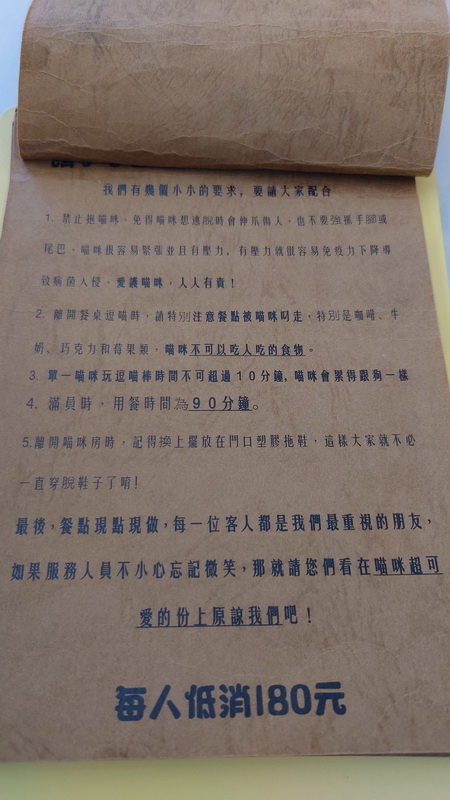 我們有幾個小小的要求，要請大家配合
1. 禁止抱喵咪，免得喵咪想逃脫時會伸爪傷人，也不要強抓手腳或
尾巴，喵咪很容易緊張並且有壓力，有壓力就很容易免疫力下降導
致病菌入侵，愛護喵咪，人人有責！
2. 離開餐桌逗喵時，請特別注意餐點被喵咪叼走，特別是咖啡、牛
奶、巧克力和莓果類，喵咪不可以吃人吃的食物。
3. 單一喵咪玩逗喵棒時間不可超過10分鐘，喵咪會累得跟狗一樣
4. 滿員時，用餐時間為90分鐘。
5.離開喵咪房時，記得換上擺放在門口塑膠拖鞋，這樣大家就不必
一直穿脫鞋子了唷！
最後，餐點現點現做，每一位客人都是我們最重視的朋友，
如果服務人員不小心忘記微笑，那就請您們看在喵咪超可
愛的份上原諒我們吧！
每人低消180元